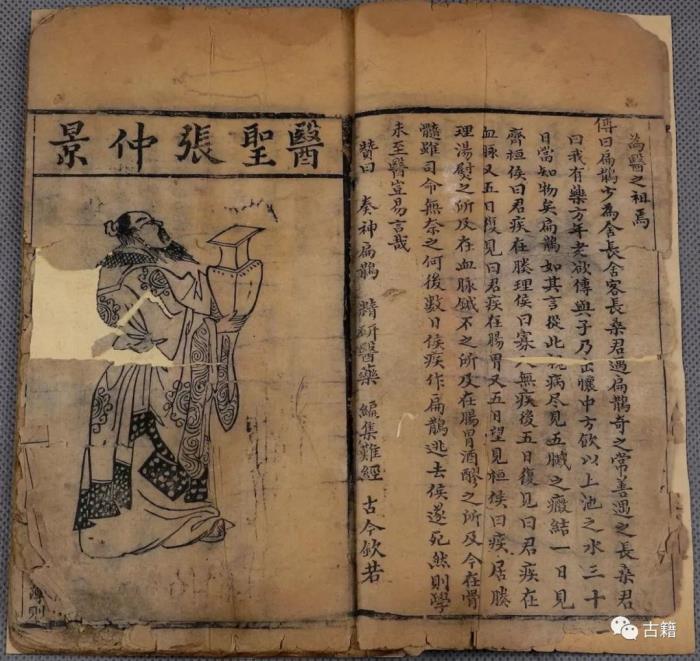 為醫之祖焉
傳曰扁鵲少為舍長舍客長桑君過扁鵲奇之常善遇之長桑君
曰我有藥方年老欲傳與子乃出懷中方飲以上池之水三十
日當知物矣扁鵲如其言從此視病尽見五臟之癥結一日見
齊桓侯曰君疾在腠理侯曰寡人無疾後五日復見曰君疾在
血脉又五日復見曰君疾在腸胃又五日望見桓侯曰疾居腠
理湯熨之所及在血脉鍼不之所及在腸胃酒醪之所及今在骨
髓雖司命無奈之何後數日侯疾作扁鵲逃去侯遂死然則學
未至醫豈易言哉
贊曰 奏神扁鵲 精研醫藥 編集難經 古今欽若
醫聖張仲景
則
古籍